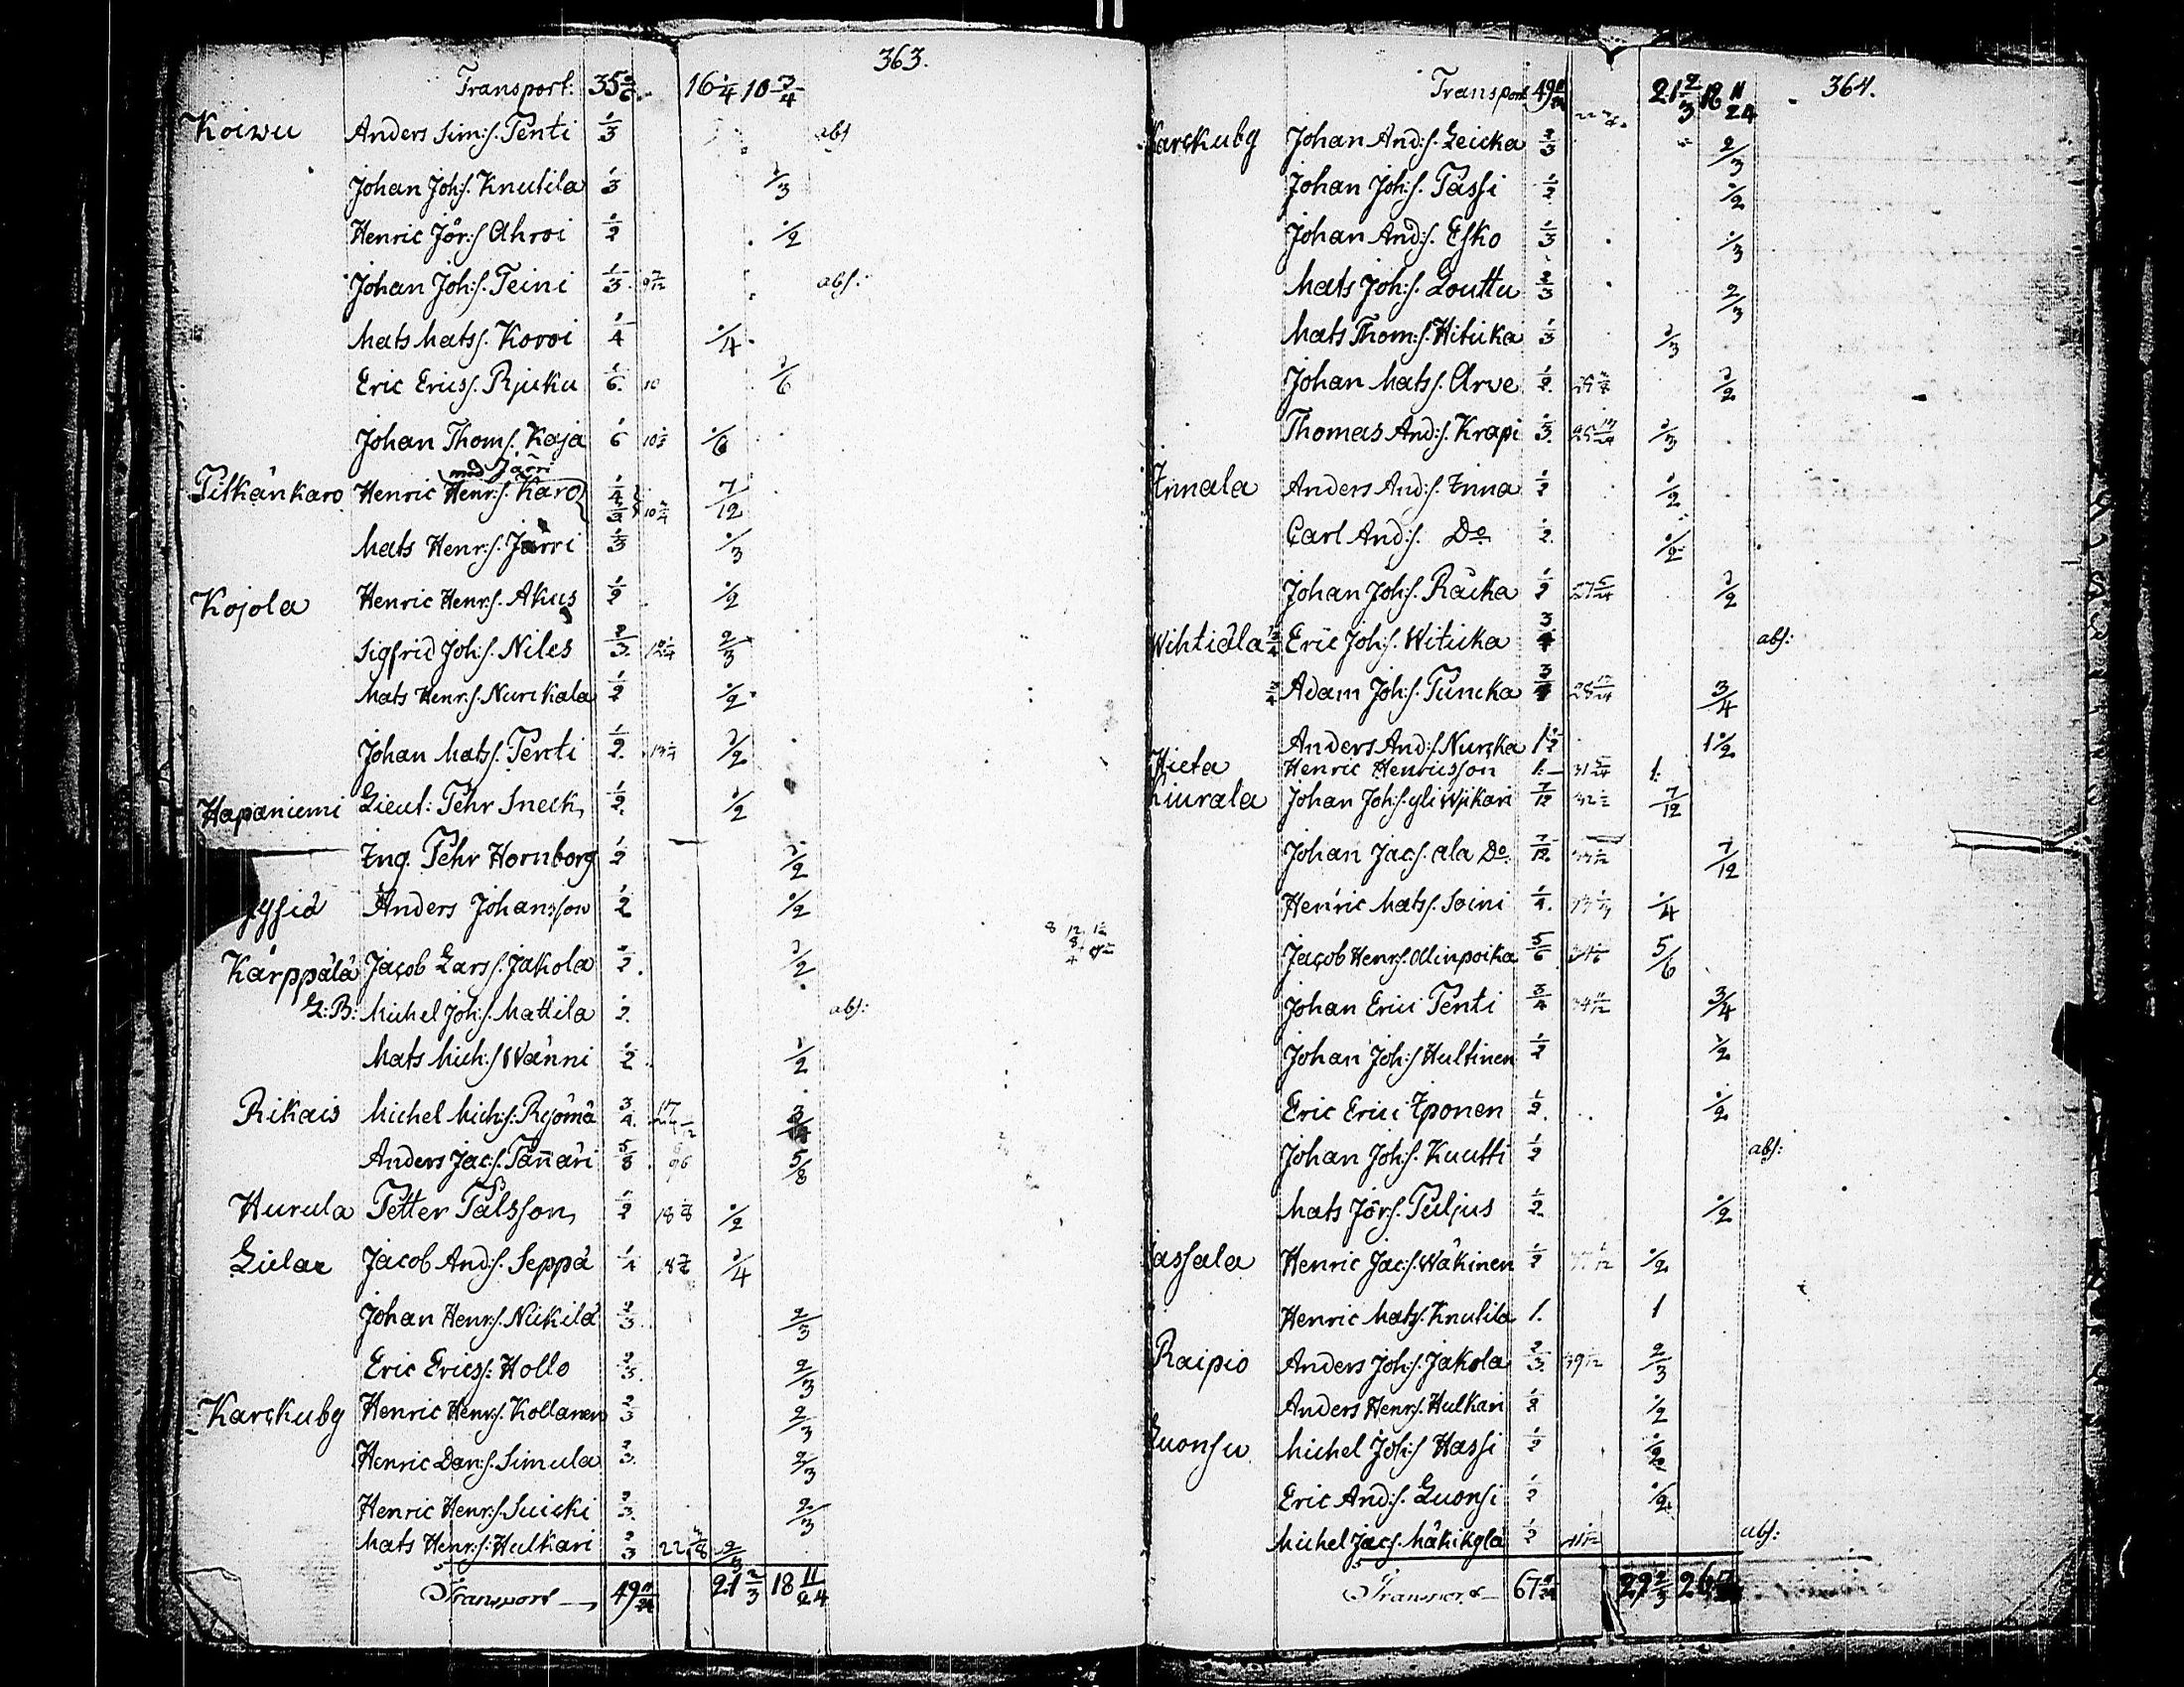 363.
Transport: 35 5/6. 16 1/4 10 3/4
Koivu Anders Sim:s. Penti 1/3 abs
Johan Joh:s. Knutila 1/3 1/3
Henric Jör:s Ahroi 1/2 1/2
Johan Joh:s. Teini 1/3 abs:
Mats Mats s. Koroi 1/4 1/4
Eric Erics s. Rjuku 1/6 10 1/6
Johan Thom s. Kaja 1/6 1/6
med Järri
Pitkänkaro Henric Henr:s. Karo 1/4 1/3 7/12
Mats Henr:s. Järri 1/3 1/3
Kojola Henric Henr:s. Akus 1/2 1/2
Sigfrid Joh:s. Niles 2/3 2/3
Mats Henr:s. Nurickala 1/2 1/2
Johan Mats s. Penti 1/2 1/2
Hapaniemi Lieut: Pehr Sneck 1/2 1/2
Ing. Pehr Hornborg 1/2 1/2
Anders Johansson 1/2 1/2
Kärppälä Jacob Lars s. Jakola 1/2 1/2
L:B: Michel Joh:s. Mattila 1/2 abs:
Mats Mich:s Wänni 1/2 1/2
Rikais Michel Mich:s. Ryömä 3/4 3/4
Anders Jac:s. Tan̄ari 5/8 5/8
Hurula Petter Pålsson 1/2 1/2
Jacob And:s. Seppä 1/4 1/4
Johan Henr:s. Nickilä 2/3 2/3
Eric Erics s: Hollo 2/3 2/3
Karckuby Henric Henr:s. Kollanen 2/3 2/3
Henric Dan:s. Simula 2/3 2/3
Henric Henr:s. Suicki 2/3 2/3
Mats Henr:s: Hulkari 2/3 2/3
Transport 49 11/24 21 2/3 18 11/24
364.
Transport 49 11/24 21 2/3 18 11/24
Karckuby Johan And:s. Leicka 2/3 2/3
Johan Joh:s. Passi 1/2 1/2
Johan And:s. Esko 1/3 1/3
Mats Joh:s. Louttu 2/3 2/3
Mats Thom:s. Hiticka 1/3 1/3
Johan Mats s. Arve 1/2 1/2
Thomas And:s. Krapi 1/3 1/3
Innala Anders And:s. Inna 1/2 1/2
Carl And:s. Do 1/2 1/2
Johan Joh:s. Räcka 1/2 1/2
Wihtiälä 3/4 Eric Joh:s. Witicka 3/4 abs:
3/4 Adam Joh:s. Puncka 3/4 3/4
Anders And:s. Nurcka 1 1/2 1 1/2
Hieta Henric Henricsson 1. 1.
Liurala Johan Joh:s. yli Wjikari 7/12 7/12
Johan Jac:s. ala Do 7/12 7/12
Henric Mats s. Soini 1/4 1/4
Jacob Henr:s. Ollinpoika 5/6 5/6
Johan Erici Penti 3/4 3/4
Johan Joh:s Hultinen 1/2 1/2
Eric Erici Iponen 1/2 1/2
Johan Joh:s. Kuutti 1/2 abs:
Mats Jör s. Puljus 1/2 1/2
Henric Jac:s. Wäkinen 1/2 1/2
Henric Mats s. Knutila 1. 1
Raipio Anders Joh:s. Jakola 2/3 2/3
Anders Henr:s. Hulkari 1/2 1/2
Luonsu Michel Joh:s Hassi 1/2 1/2
Eric And:s. Luonsi 1/2 1/2
Michel Jac s. Mäkikylä 1/2 abs:
Transport 67 29 2/3